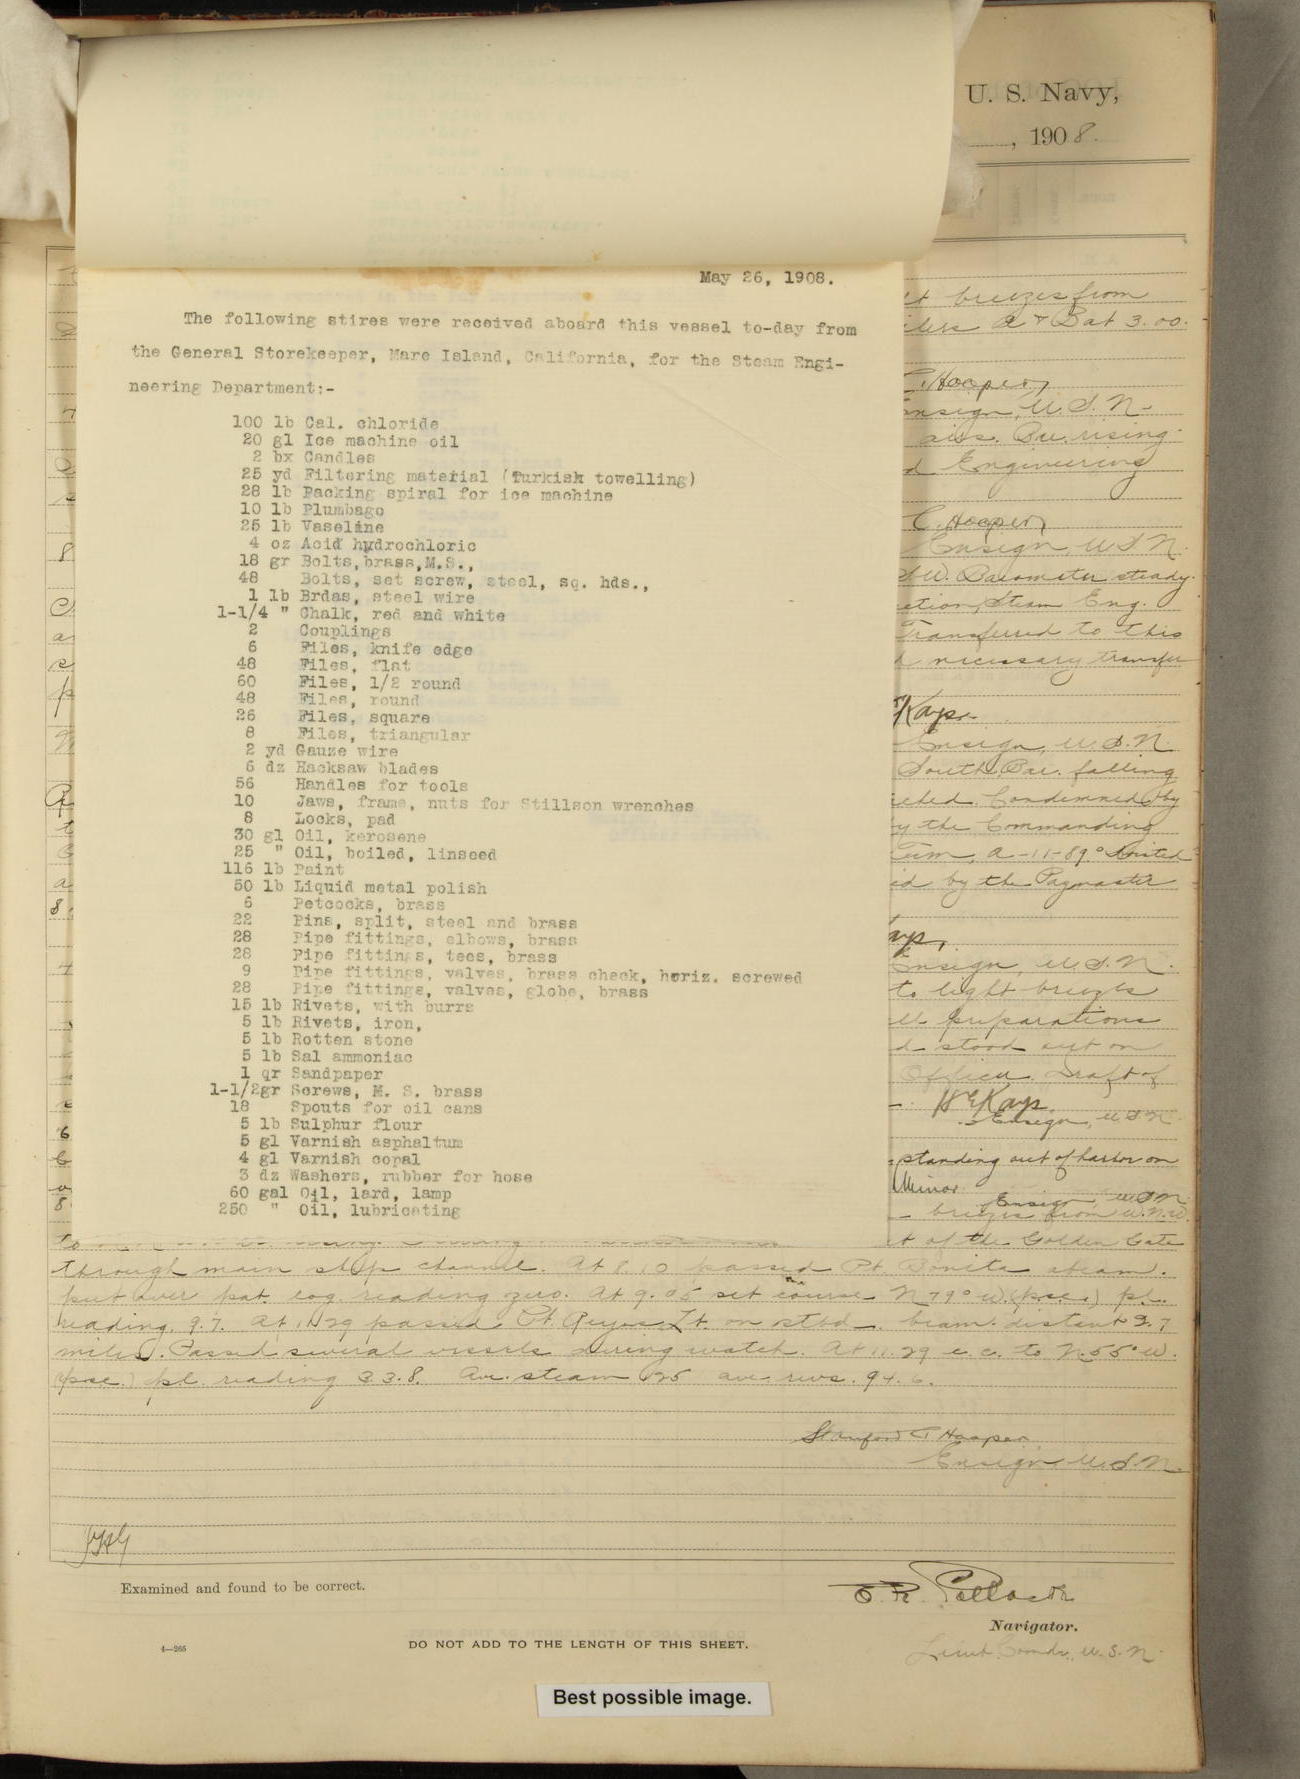 U. S. Navy,
, 1908.
May 26, 1908.
The following stires were received aboard this vessel to-day from
the General Storekeeper, Mare Island, California, for the Steam Engi-
neering Department:-
100 lb Cal. chloride
20 gl Ice machine oil
2 bx Candles
25 yd Filtering material (Turkish towelling)
28 lb Packing spiral for ice machine
10 lb Plumbago
25 lb Vaseline
4 oz Acid hydrochloric
18 gr Bolts,brass,M.S.,
48 Bolts, set screw, steel, sq. hds.,
1 lb Brdas, steel wire
1-1/4 " Chalk, red and white
2 Couplings
6 Files, knife edge
48 Files, flat
60 Files, 1/2 round
48 Files, round
26 Files, square
8 Files, triangular
2 yd Gauze wire
6 dz Hacksaw blades
56 Handles for tools
10 Jaws, frame, nuts for Stillson wrenches
8 Locks, pad
30 gl Oil, kerosene
25 " Oil, boiled, linseed
116 lb Paint
50 lb Liquid metal polish
6 Petcocks, brass
22 Pins, split, steel and brass
28 Pipe fittings, elbows, brass
28 Pipe fittings, tees, brass
9 Pipe fittings, valves, brass check, horiz. screwed
28 Pipe fittings, valves, globe, brass
15 lb Rivets, with burrs
5 lb Rivets, iron,
5 lb Rotten stone
5 lb Sal ammoniac
1 qr Sandpaper
1-1/2gr Screws, M. S. brass
18 Spouts for oil cans
5 lb Sulphur flour
5 gl Varnish asphaltum
4 gl Varnish copal
3 dz Washers, rubber for hose
60 gal Oil, lard, lamp
250 " Oil, lubricating
breezes from
& B at 3.00.
C. Hooper,
Ensign, U.S.N.
Bar. rising
Engineering
C. Hooper,
Ensign, U.S.N.
Barometer steady.
Steam Eng.
Transferred to this
necessary transfer
Kays.
Ensign, U.S.N.
South, Bar. falling
Condemned by
by the Commanding
by the Paymaster
Ensign, U.S.N.
to light breezes
preparations
stood out on
Officer. Draft of
H E Kays.
Ensign, U.S.N.
standing out of harbor on
Minor
Ensign, U.S.N.
breezes from W.N.W.
of the Golden Gate
through main ship channel. At 8.10 passed Pt. Bonita abeam.
put over pat. log. reading zero. At 9.05 set course N 79° W (psc.) pl.
reading, 9.7. At 11.29 passed Pt. Reyes Lt. on stbd. beam. distant 3.7
miles. Passed several vessels during watch. At 11.29 c.c. to N.55° W.
(psc.) pl. reading 33.8. Av. steam 125 ave revs. 94.6.
Stanford C Hooper
Ensign U.S.N.
Examined and found to be correct.
Navigator.
Lieut. Comdr., U.S.N.
4—265
DO NOT ADD TO THE LENGTH OF THIS SHEET.
Best possible image.